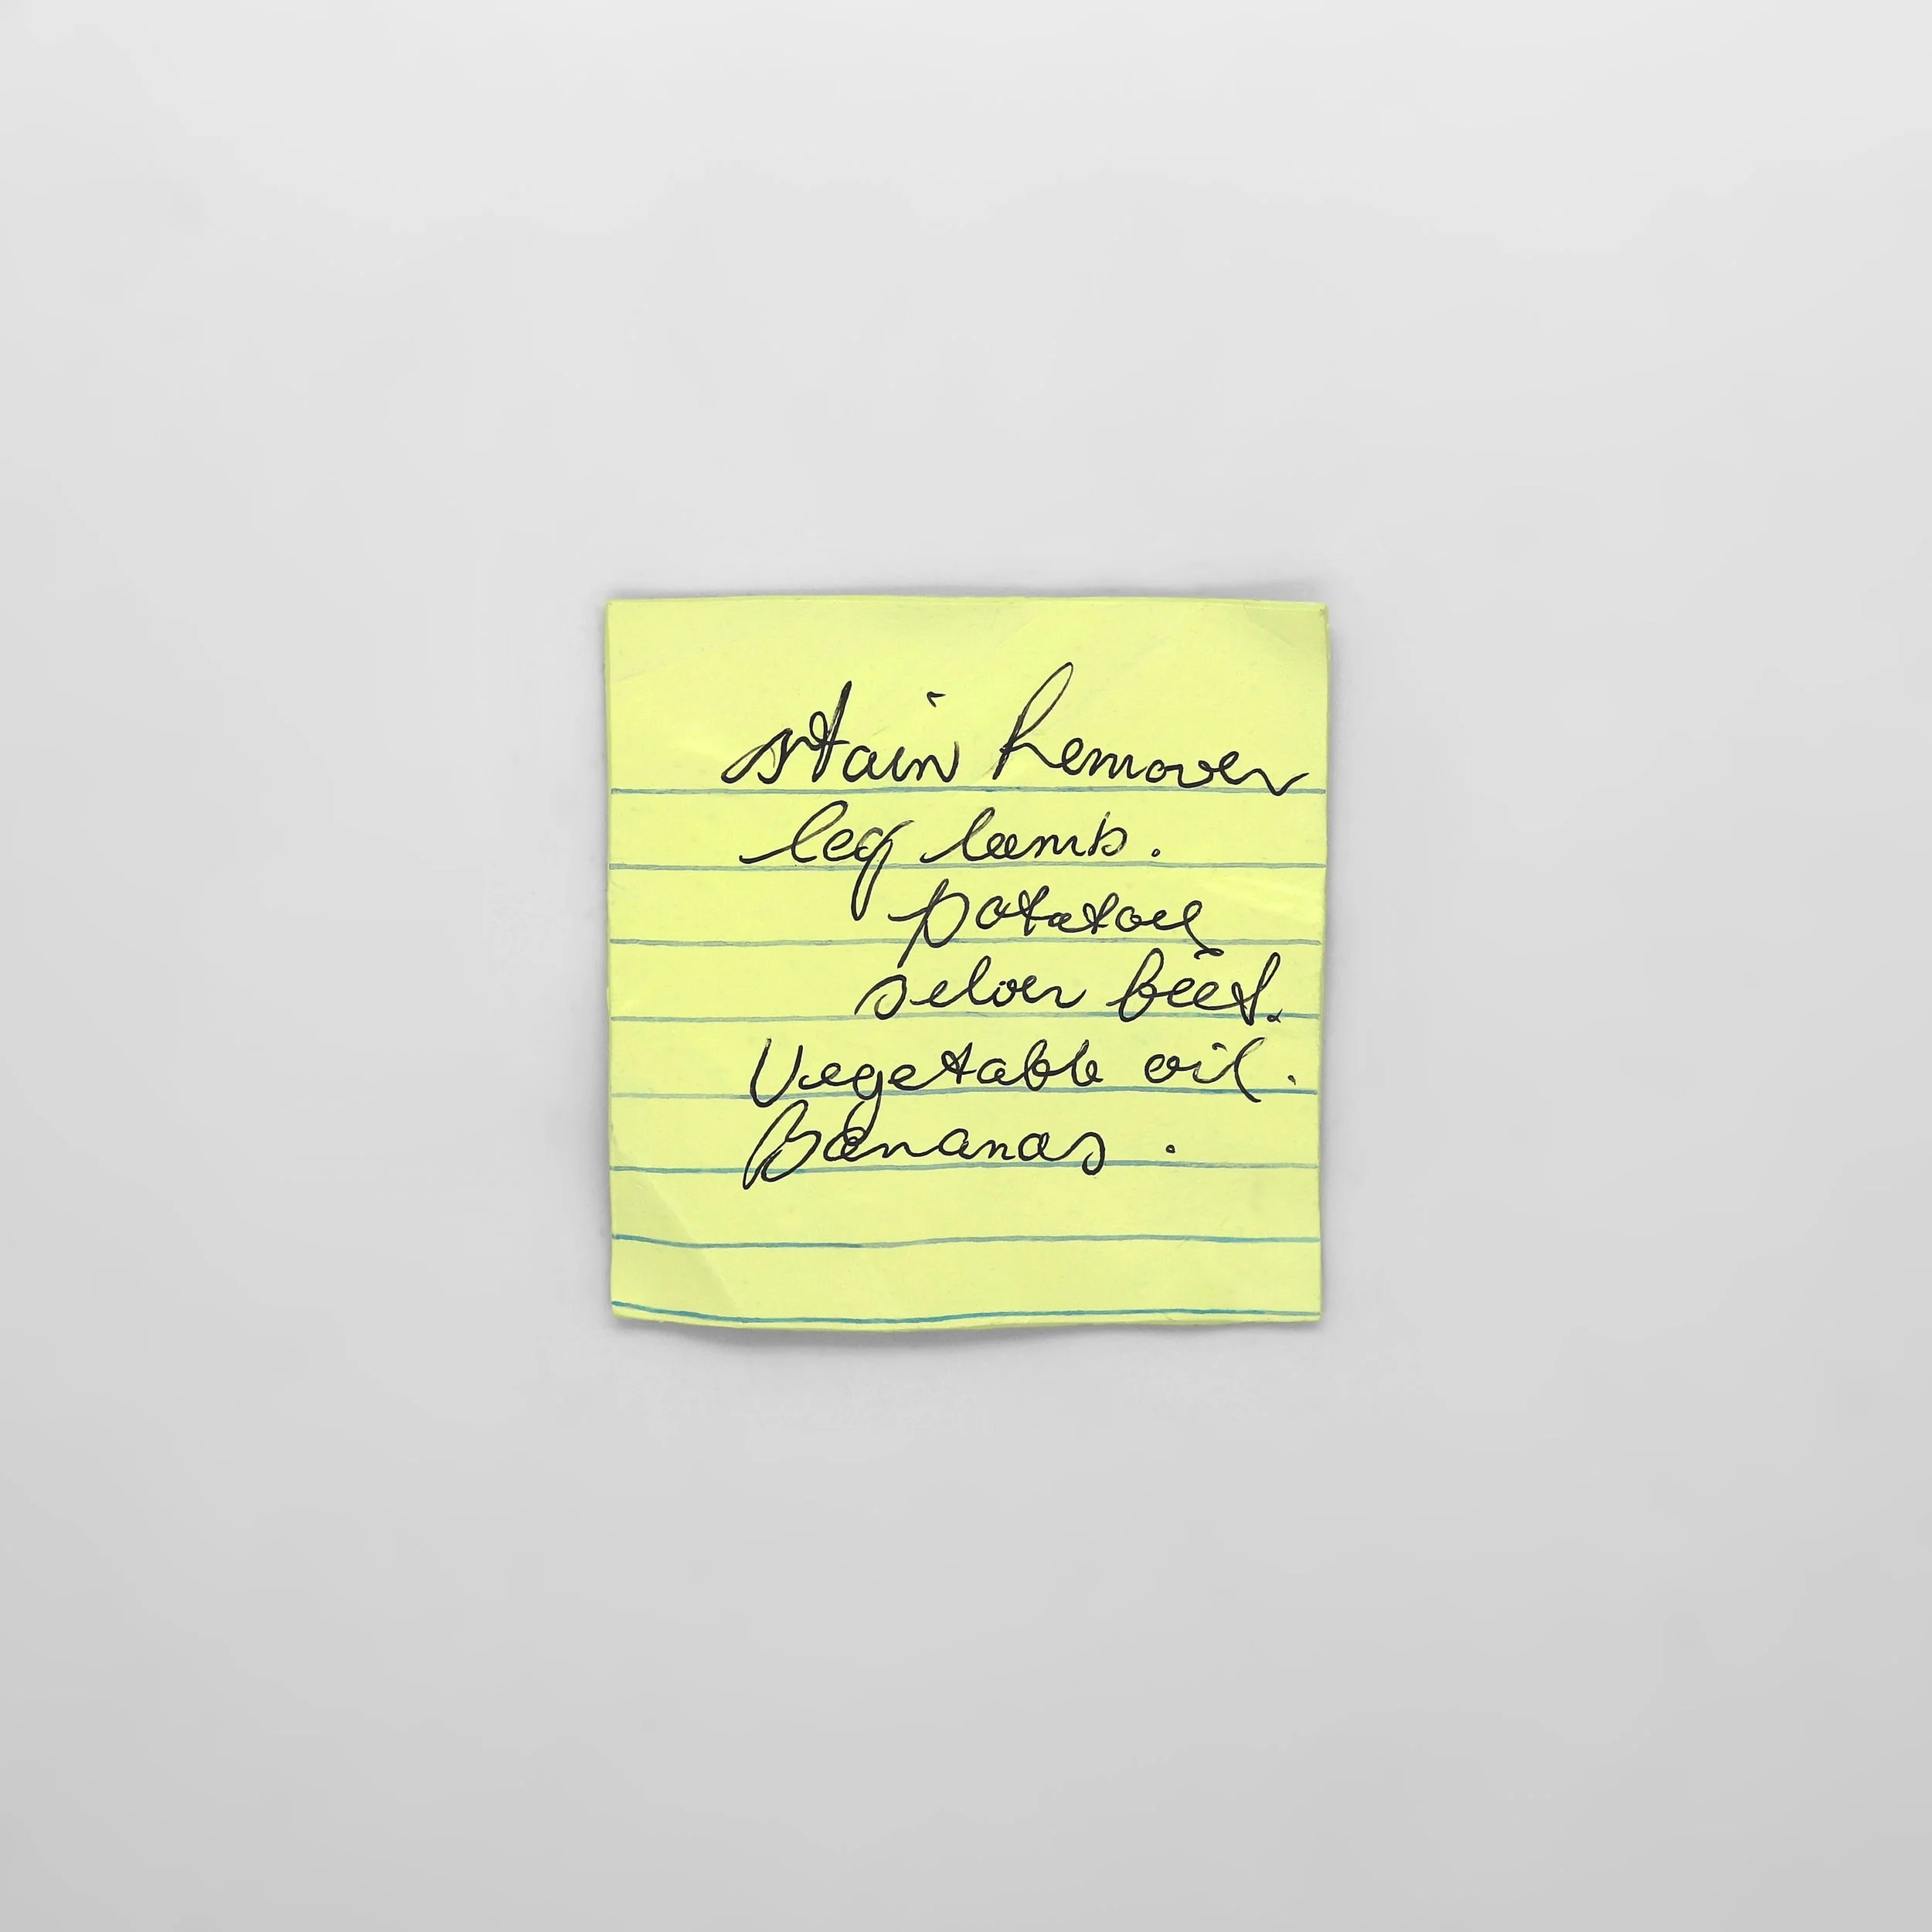 stain Remover
leg lamb.
potatoes
selver beet.
Vegetable oil.
Bananas.